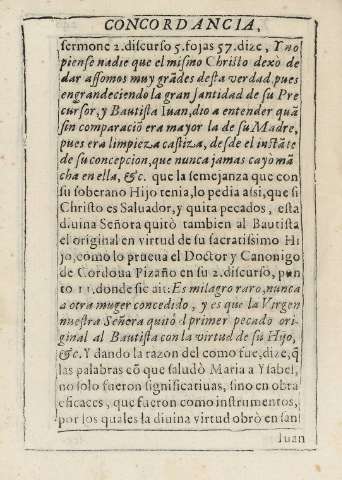 CONCORDANCIA,
sermone 2. discurso 5. fojas 57. dize, Y no
piense nadie que el mismo Christo dexò de
dar assomos muy grãdes desta verdad, pues
engrandeciendo la gran santidad de su Pre
cursor, y Bautista Iuan, dio a entender quã
sin comparaciõ era mayor la de su Madre,
pues era limpieza castiza, desde el instãte
de su concepcion, que nunca jamas cayò mã
cha en ella, &c. que la semejanza que con
su soberano Hijo tenia, lo pedia assi, que si
Christo es Saluador, y quita pecados, esta
diuina Señora quitò tambien al Bautista
el original en virtud de su sacratissimo Hi
jo, como lo prueua el Doctor y Canonigo
de Cordoua Pizaño en su 2. discurso, pun
to 11. donde sic ait: Es milagro raro, nunca
a otra muger concedido, y es que la Virgen
nuestra Señora quitò el primer pecado ori-
ginal al Bautista con la virtud de su Hijo,
&c. Y dando la razon del como fue, dize, q̃
las palabras cõ que saludò Maria a Ysabel,
no solo fueron significatiuas, sino en obra
eficaces, que fueron como instrumentos,
por los quales la diuina virtud obrò en san
Iuan